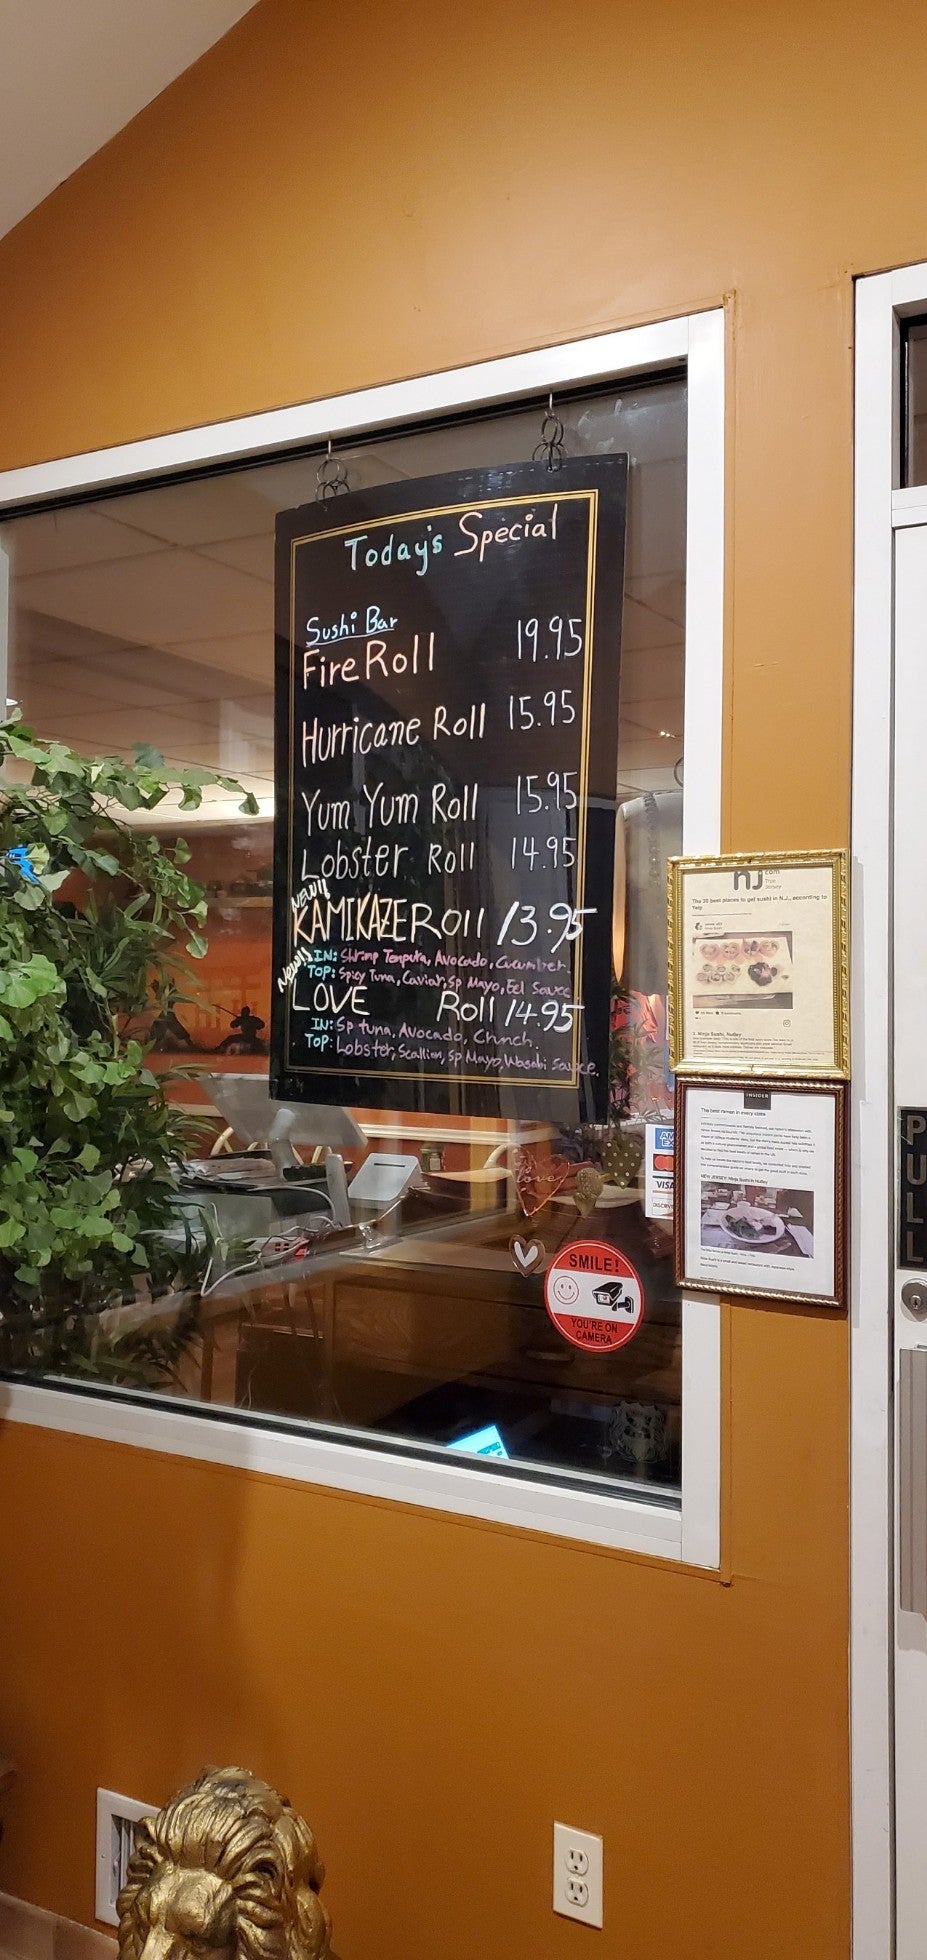 Today's Special
Sushi Bar
Fire Roll 19.95
Hurricane Roll 15.95
Yum Yum Roll 15.95
Lobster Roll 14.95
NEW!!
KAMIKAZE Roll 13.95
IN: Shrimp Tempura, Avocado, Cucumber.
TOP: Spicy Tuna, Caviar, Sp Mayo, Eel Sauce
New!!
LOVE Roll 14.95
IN: Sp tuna, Avocado, Chnch.
TOP: Lobster, Scallion, Sp Mayo, Wasabi Sauce.
nj.com
True
Jersey
The 30 best places to get sushi in N.J., according to
Yelp
Ninja Sushi, Nutley
INSIDER
The best ramen in every state
NEW JERSEY: Ninja Sushi in Nutley
VISA
love
SMILE!
YOU'RE ON
CAMERA
PULL